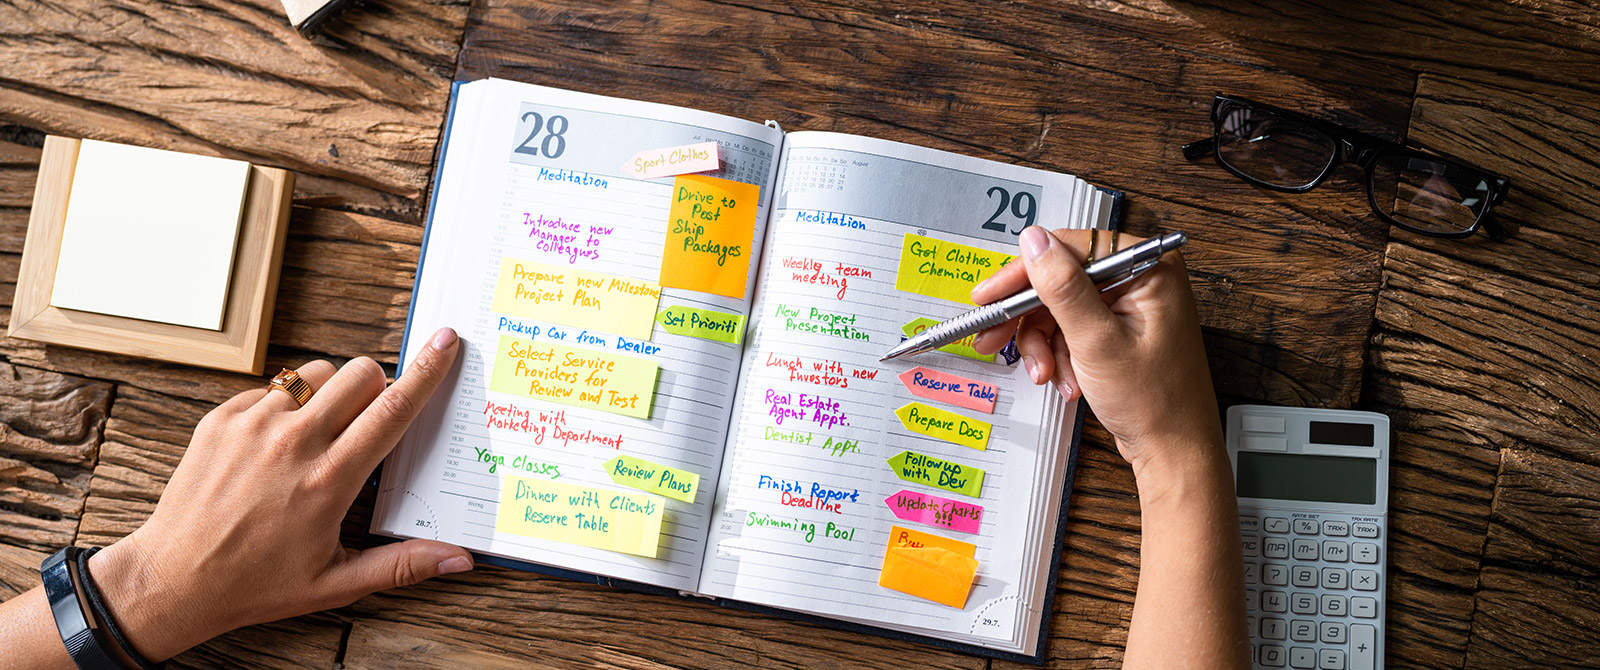 28
Sport Clothes
Meditation
Drive to
Post
Ship
Packages
Introduce new
Manager to
Colleagues
Prepare new Milestone
Project Plan
Set Prioriti
Pickup Car from Dealer
Select Service
Providers for
Review and Test
Meeting with
Marketing Department
Yoga Classes
Review Plans
Dinner with Clients
Reserve Table
28.7.
August
29
Meditation
Get Clothes f
Chemical
Weekly team
meeting
New Project
Presentation
Lunch with new
Investors
Reserve Table
Real Estate
Agent Appt.
Prepare Docs
Dentist Appt.
Follow up
with Dev
Finish Report
Deadline
Update Charts
!!!
Swimming Pool
Buy
29.7.
√ % TAX- TAX+
MR M- M+ ÷
7 8 9 ×
4 5 6 −
1 2 3 +